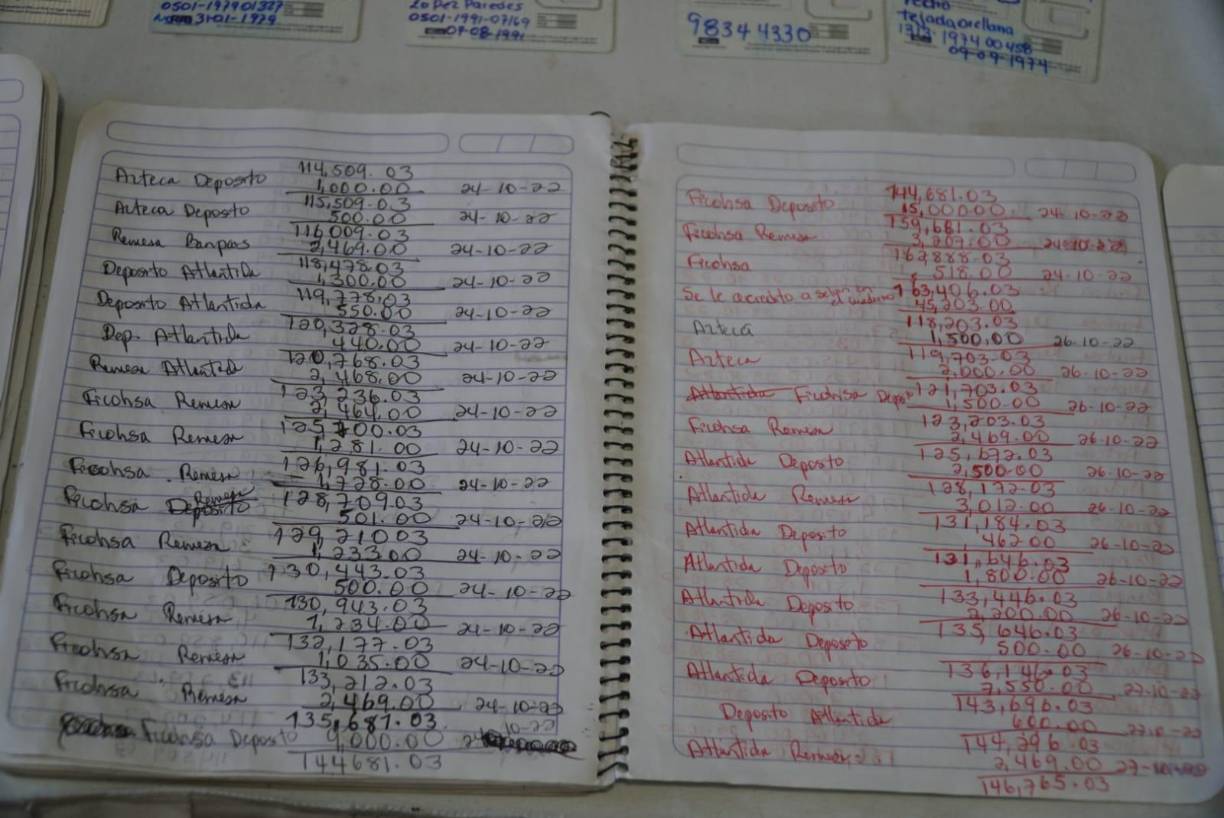 0501-197901327
3101-1979
Lopez Paredes
0501-1991-07169
07-08-1991
9834 4330
tejada orellana
1313-1974 00458
09-09-1974
114,509.03
Azteca Deposito 1,000.00 24-10-22
115,509.03
Azteca Deposito 500.00 24-10-22
116,009.03
Remesa Banpais 2,469.00 24-10-22
118,478.03
Deposito Atlantida 1,300.00 24-10-22
119,778.03
Deposito Atlantida 550.00 24-10-22
120,328.03
Dep. Atlantida 440.00 24-10-22
120,768.03
Remesa Atlantida 2,468.00 24-10-22
123,236.03
Ficohsa Remesa 2,464.00 24-10-22
125,700.03
Ficohsa Remesa 1,281.00 24-10-22
126,981.03
Ficohsa Remesa 1,728.00 24-10-22
128,709.03
Ficohsa Deposito Remesa 501.00 24-10-22
129,210.03
Ficohsa Remesa 1,233.00 24-10-22
130,443.03
Ficohsa Deposito 500.00 24-10-22
130,943.03
Ficohsa Remesa 1,234.00 24-10-22
132,177.03
Ficohsa Remesa 1,035.00 24-10-22
133,212.03
Ficohsa Remesa 2,469.00 24-10-22
135,681.03
Ficohsa Deposito 9,000.00 24 10-22
144681.03
144,681.03
Ficohsa Deposito 15,000.00 24-10-22
159,681.03
Ficohsa Remesa 3,207.00 24-10-22
162,888.03
Ficohsa 518.00 24-10-22
163,406.03
Se le acredito a en el cuaderno 45,203.00
118,203.03
Azteca 1,500.00 26-10-22
119,703.03
Azteca 2,000.00 26-10-22
121,703.03
Atlantida Ficohsa Depos 1,500.00 26-10-22
123,203.03
Ficohsa Remesa 2,469.00 26-10-22
125,672.03
Atlantida Deposito 2,500.00 26-10-22
128,172.03
Atlantida Remesa 3,012.00 26-10-22
131,184.03
Atlantida Deposito 462.00 26-10-22
131,646.03
Atlantida Deposito 1,800.00 26-10-22
133,446.03
Atlantida Deposito 2,200.00 26-10-22
135,646.03
Atlantida Deposito 500.00 26-10-22
136,146.03
Atlantida Deposito 7,550.00 27-10-22
143,696.03
Deposito Atlantida 600.00 27-10-22
144,296.03
Atlantida Remesa 2,469.00 27-
146,765.03